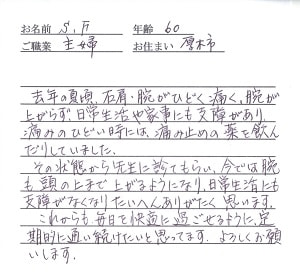 お名前 S.F 年齢 60
ご職業 主婦 お住まい 厚木市
去年の夏頃、右肩・腕がひどく痛く、腕が
上がらず、日常生活や家事にも支障があり、
痛みのひどい時には、痛み止めの薬を飲ん
だりしていました。
その状態から先生に診てもらい、今では腕
も頭の上まで上がるようになり、日常生活にも
支障がなくなりたいへんありがたく思います。
これからも毎日を快適に過ごせるように、定
期的に通い続けたいと思ってます。よろしくお願
いします。